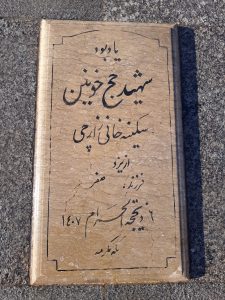 یادبود
شهید حج خونین
سکینه خانی زارچی
از یزد
فرزند: صفر
۶ ذیحجة الحرام ۱۴۰۷
مکه مکرمه